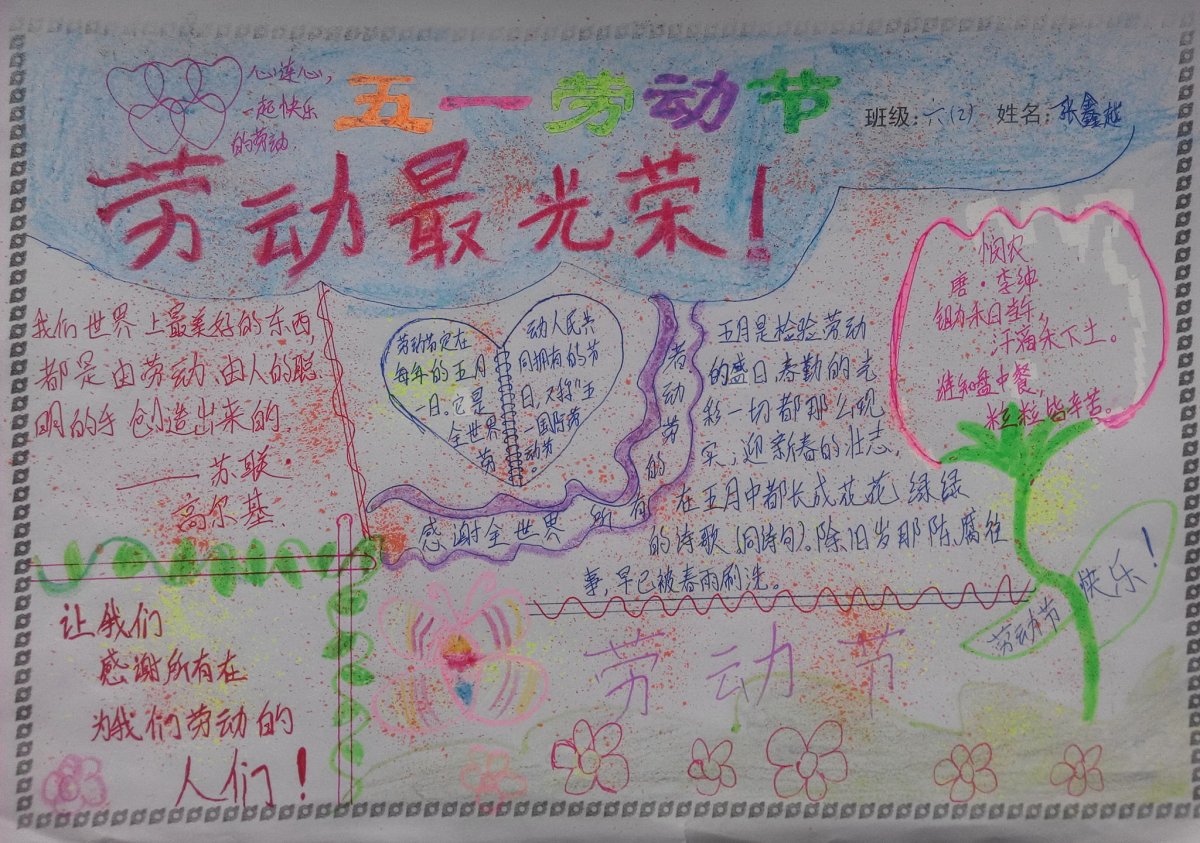 心连心，
一起快乐
的劳动.
五一劳动节
班级:六(2) 姓名:张鑫越
劳动最光荣！
我们世界上最美好的东西，
都是由劳动、由人的聪
明的手创造出来的.
——苏联·
高尔基
劳动节定在
每年的五月
一日。它是
全世界
劳
动人民共
同拥有的节
日，又称“五
一国际劳
动节。
感谢全世界所有的劳动者
五月是检验劳动
的盛日，春勤的光
彩一切都那么现
实；迎新春的壮志，
在五月中都长成花花绿绿
的诗歌（同诗句）。除旧岁那陈腐往
事，早已被春雨刷洗。
悯农
唐·李绅
锄禾日当午，
汗滴禾下土。
谁知盘中餐，
粒粒皆辛苦。
劳动节快乐！
让我们
感谢所有在
为我们劳动的
人们！
劳动节